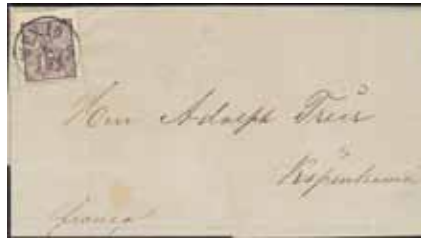 Herrn Adolph Trier
Kopenhamn
franco